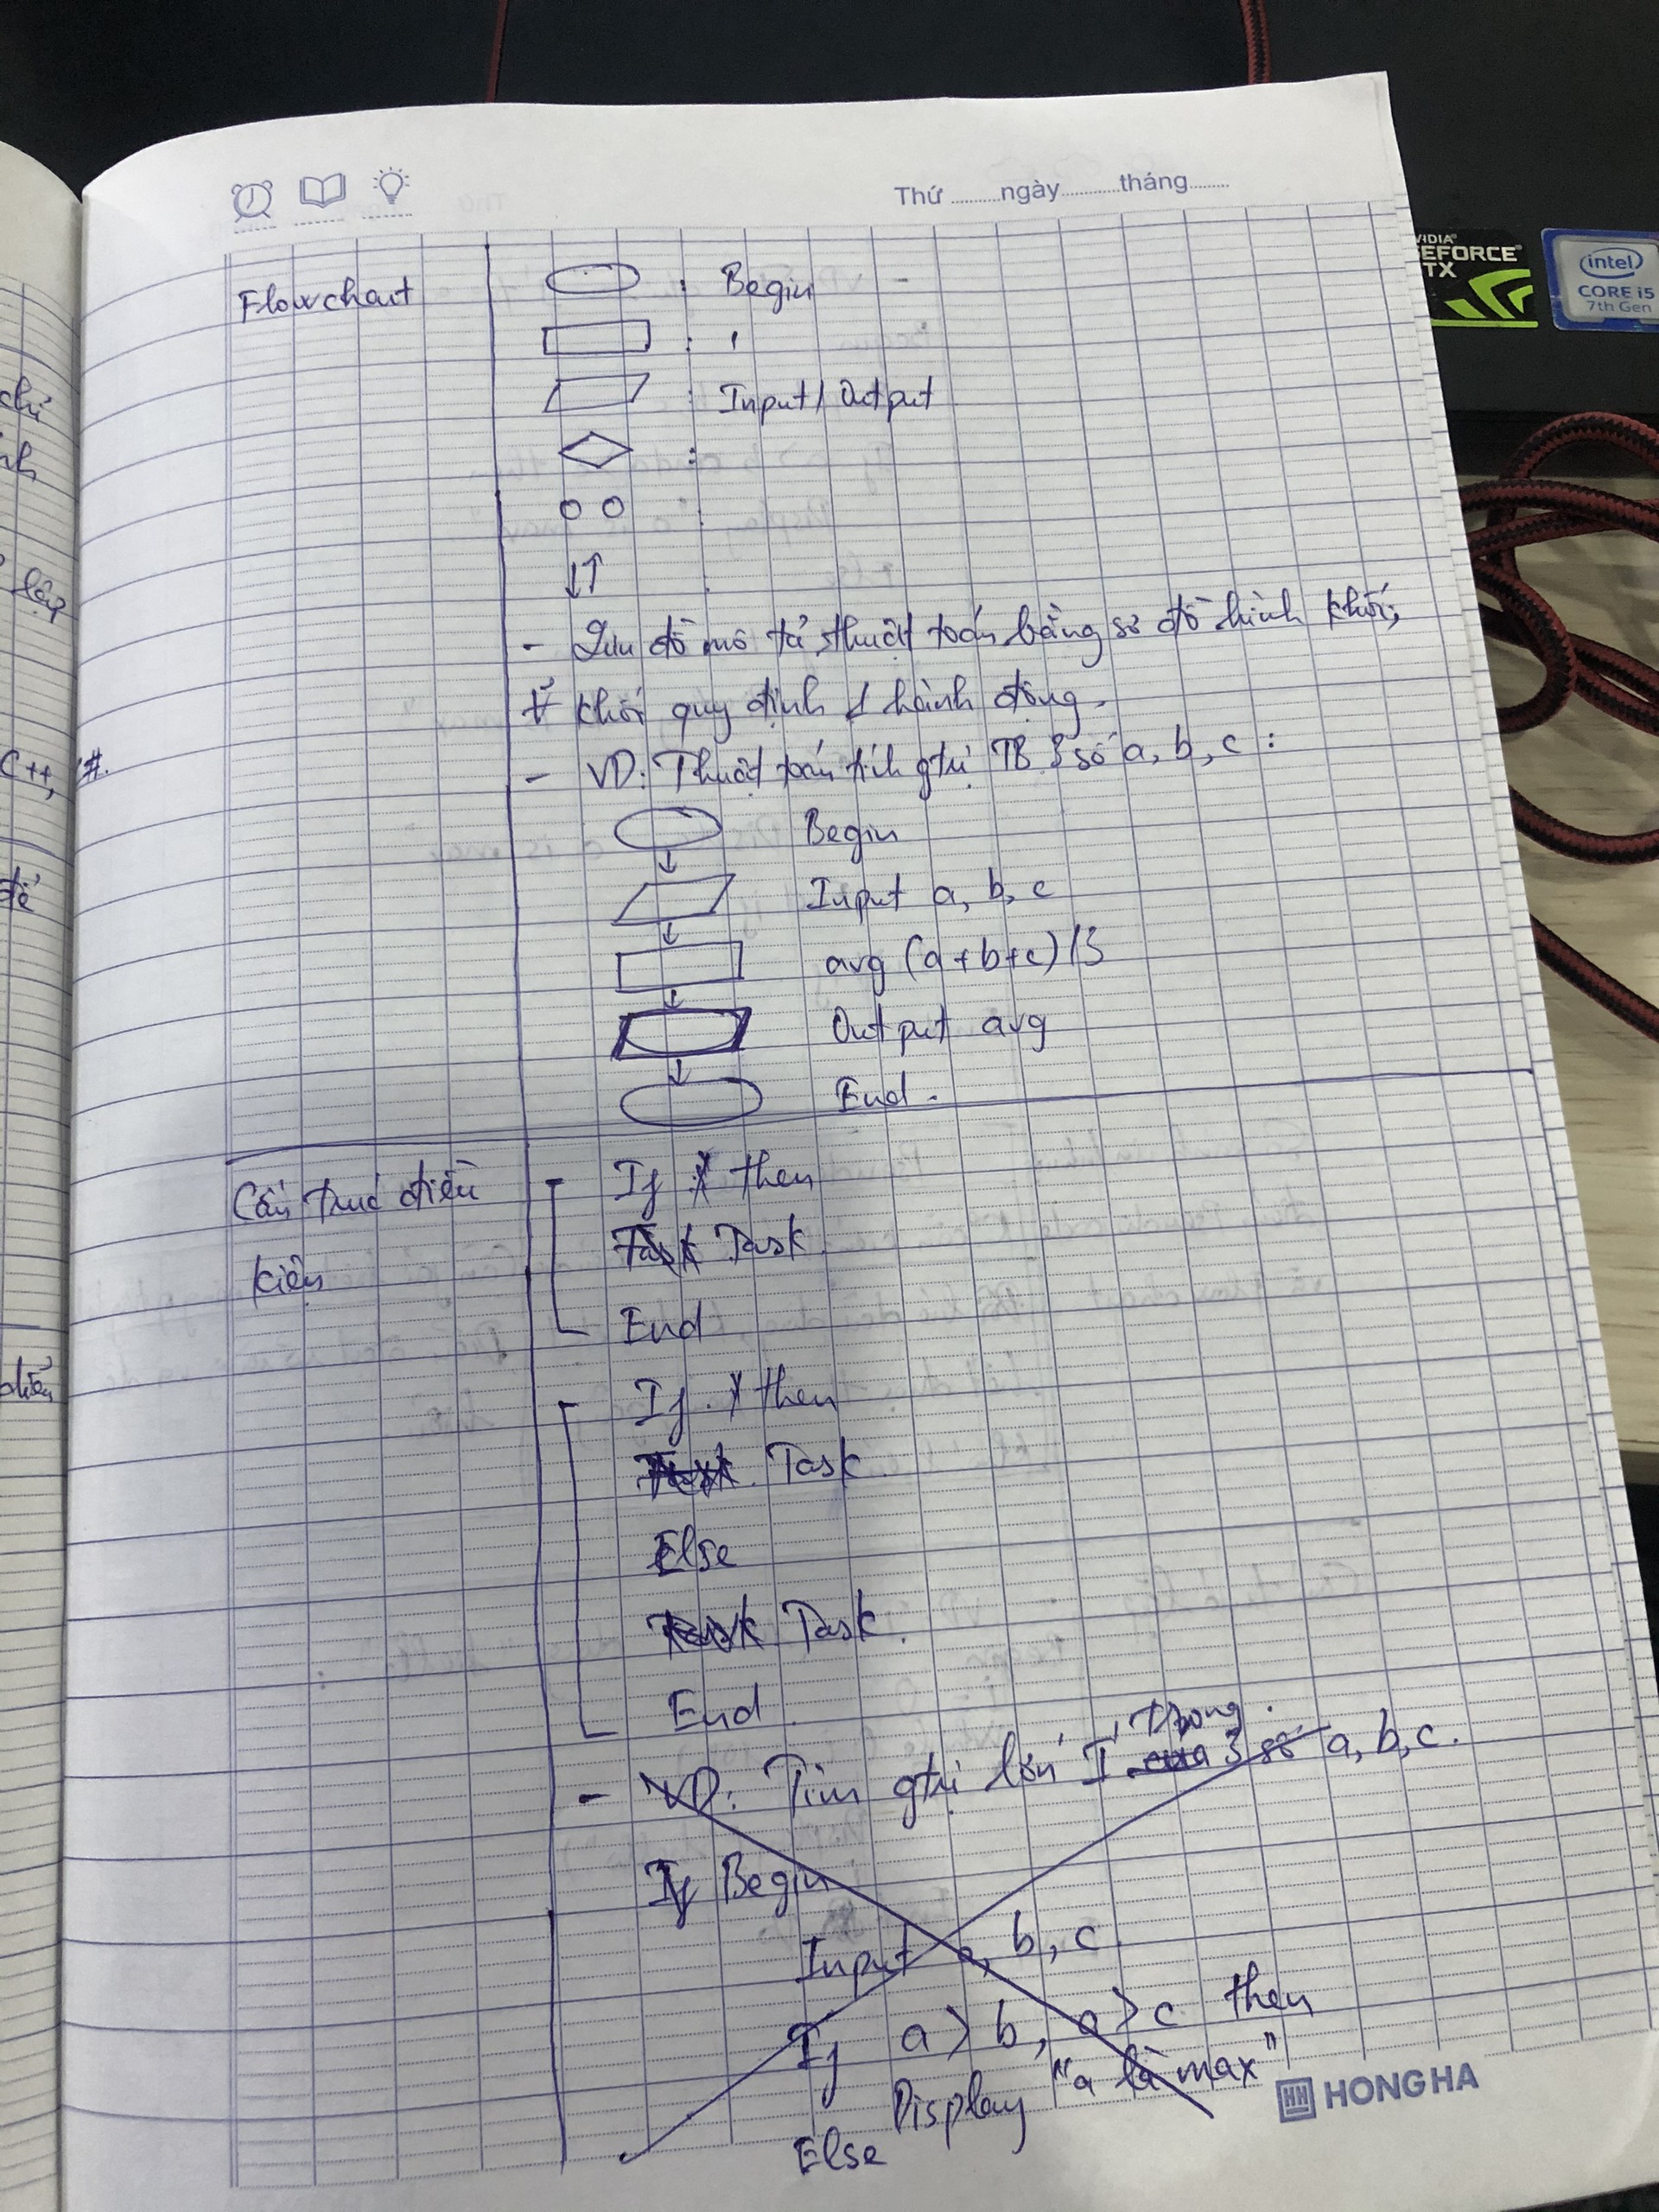 Thứ ..........ngày............tháng........
Flowchart
: Begin
:
: Input / Output
:
- Lưu đồ mô tả thuật toán bằng sơ đồ hình khối,
khối quy định 1 hành động.
- VD: Thuật toán tính gtrị TB 3 số a, b, c :
Begin
Input a, b, c
avg (a+b+c)/3
Output avg
End.
Cấu trúc điều
kiện
If X then
Task Task
End
If X then
Task
Else
Task
End
- VD: Tìm gtrị lớn I trong 3 số a, b, c.
If Begin
Input a, b, c
If a > b, a > c then
Display "a là max"
Else
HONG HA
NVIDIA
GEFORCE
GTX
intel
CORE i5
7th Gen
chỉ
lặp
C++, #.
để